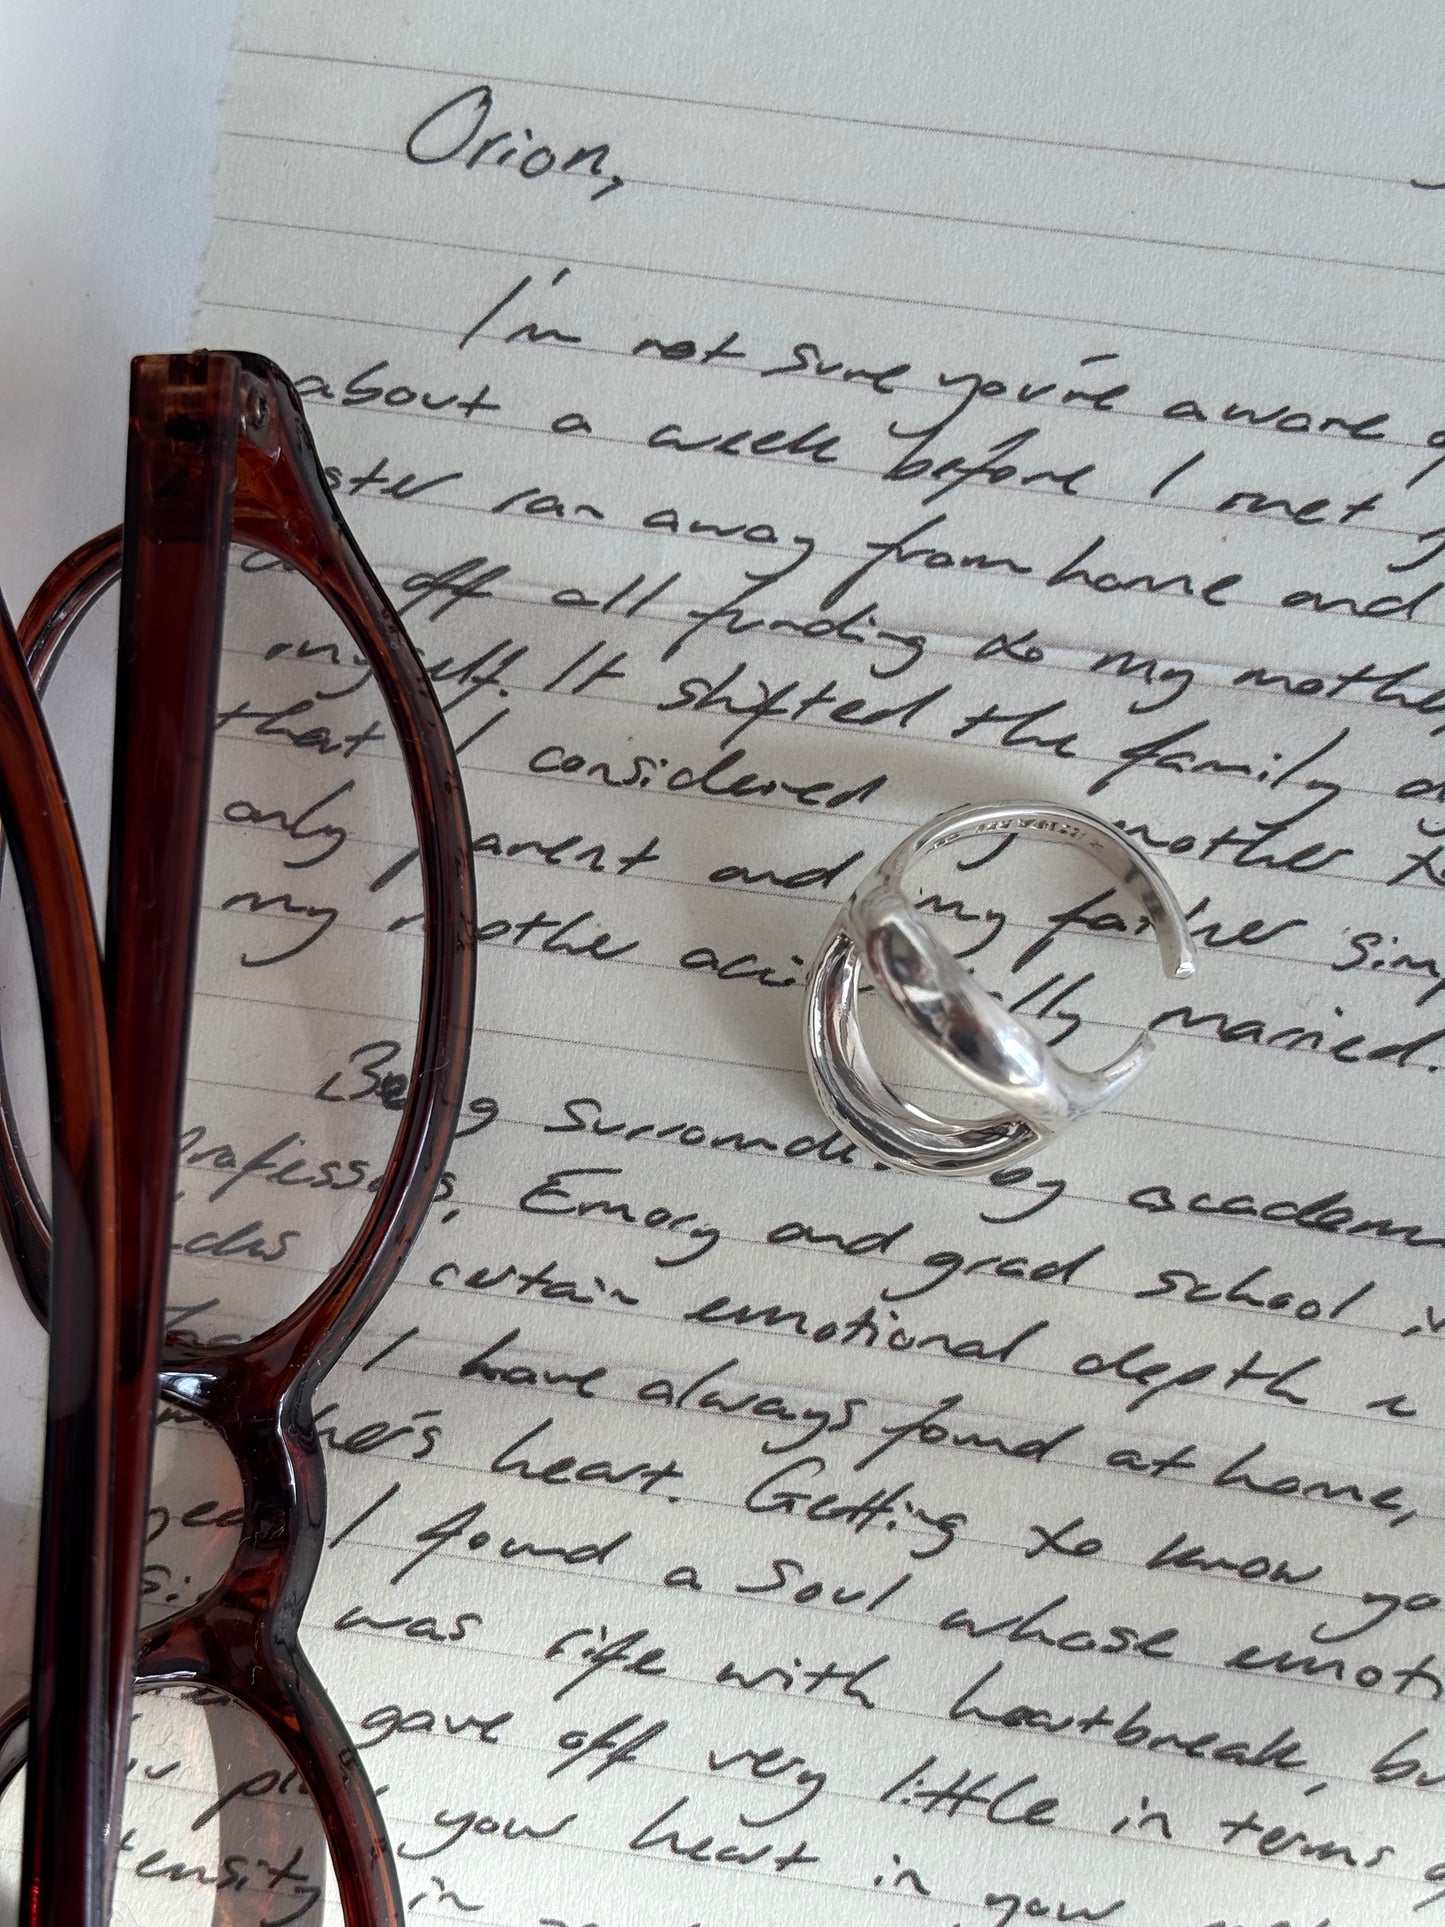 Orion,
I'm not sure you're aware
about a week before I met
ran away from home and
off all funding to my mother
myself. It shifted the family
that I considered my mother
only parent and my father
my mother accidentally married.
Being surrounded by
Professors, Emory and grad school
certain emotional depth
I have always found at home,
heart. Getting to know
I found a soul whose
was rife with heartbreak,
gave off very little in terms
your heart in your
in